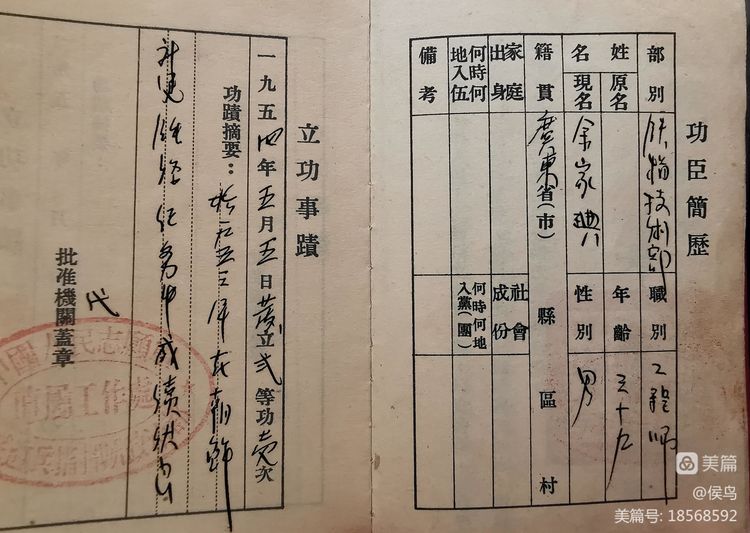 功臣簡歷
部別 鉄指技術部 職別 工程師
姓名 原名 年齡 三十九
現名 余家典 性別 男
籍貫 廣東省(市) 縣 區 村
家庭出身 社會成份
何時何地入伍 何時何地入黨(團)
備考
立功事蹟
一九五四年五月五日 立貳等功壱次
功蹟摘要：於一九五三年在朝鮮
任務中成績
批准機關蓋章
代
中國人民志願
直屬工作處
美篇
@侯鸟
美篇号: 18568592